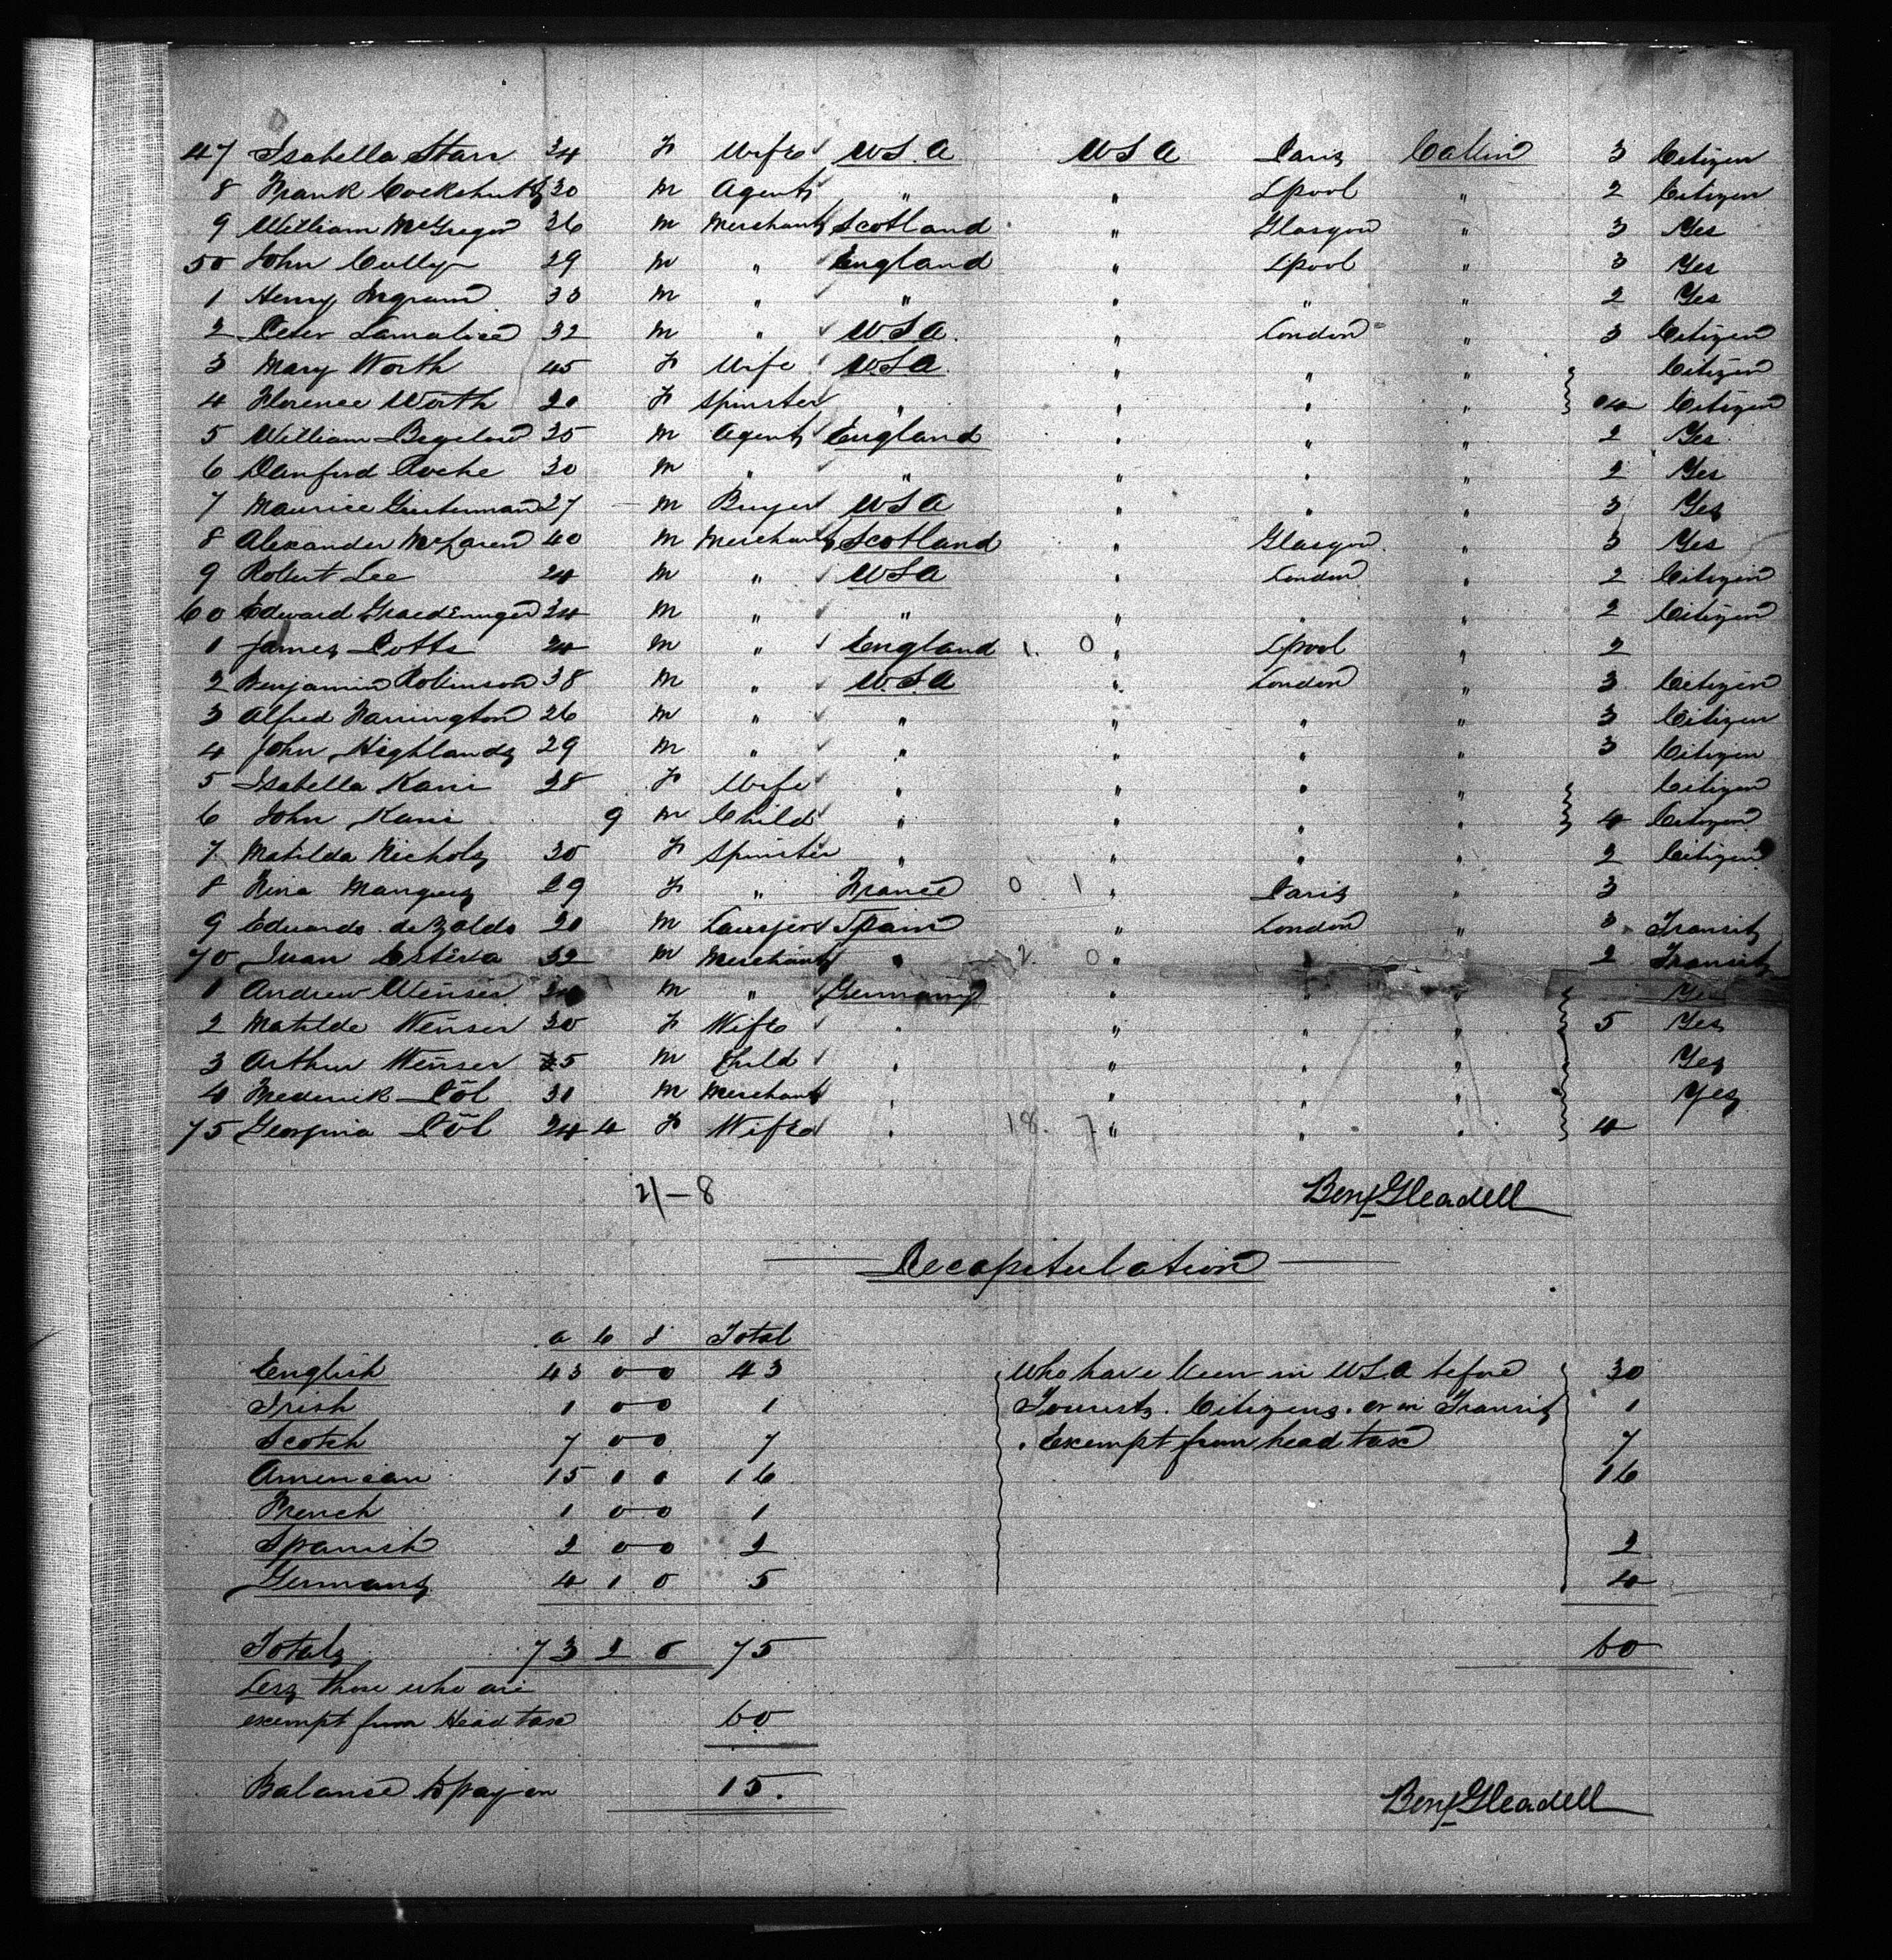 47 Isabella Starr 34 F Wife U.S.A U S A Paris Cabin 3 Citizen
8 Frank Cockshutt 30 m Agent " " Lpool " 2 Citizen
9 William McGregor 36 m Merchant Scotland " Glasgow " 3 Yes
50 John Cully 29 m " England " Lpool " 3 Yes
1 Henry Ingram 33 m " " " " " 2 Yes
2 Peter 32 m " U.S.A. " London " 3 Citizen
3 Mary Worth 45 F Wife U.S.A. " " " Citizen
4 Florence Worth 20 F Spinster " " " " 4 Citizen
5 William Bigelow 35 m Agent England " " " 2 Yes
6 Danford Roche 30 m " " " " " 2 Yes
7 Maurice Ginterman 27 m Buyer U S A " " " 3 Yes
8 Alexander McLaren 40 m Merchant Scotland " Glasgow " 3 Yes
9 Robert Lee 24 m " U S A " London " 2 Citizen
60 Edward 34 m " " " " " 2 Citizen
1 James Potts 24 m " England 1. 0 " Lpool " 2
2 Benjamin Robinson 38 m " U.S.A " London " 3 Citizen
3 Alfred Farrington 26 m " " " " " 3 Citizen
4 John Highlands 29 m " " " " " 3 Citizen
5 Isabella Kane 28 F Wife " " " " Citizen
6 John Kane 9 m Child " " " " 4 Citizen
7 Matilda Nichols 30 F Spinster " " " " 2 Citizen
8 Nina Marquez 29 F " France 0 1 " Paris " 3
9 Eduardo de Zaldo 20 m Spain " London " 3 Transit
70 Juan Esteva 32 m Merchant " 2. 0 " " " 2 Transit
1 Andrew Weuser m " Germany " " " Yes
2 Matilde Weuser 30 F Wife " " " " 5 Yes
3 Arthur Weuser 5 m Child " " " " Yes
4 Frederick Pöl 31 m Merchant " " " " Yes
75 Georgina Pöl 24 4 F Wife " 18. 7 " " " 4
21-8 Benj Gleadell
Recapitulation
a b d Total
English 43 0 0 43 Who have been in U.S.A before 30
Irish 1 0 0 1 Tourists. Citizens. or in Transit 1
Scotch 7 0 0 7 . Exempt from head tax 7
American 15 1 0 16 16
French 1 0 0 1
Spanish 2 0 0 2 2
Germans 4 1 0 5 4
Totals 73 2 0 75 60
Less those who are
exempt from Head tax 60
Balance to pay on 15. Benj Gleadell